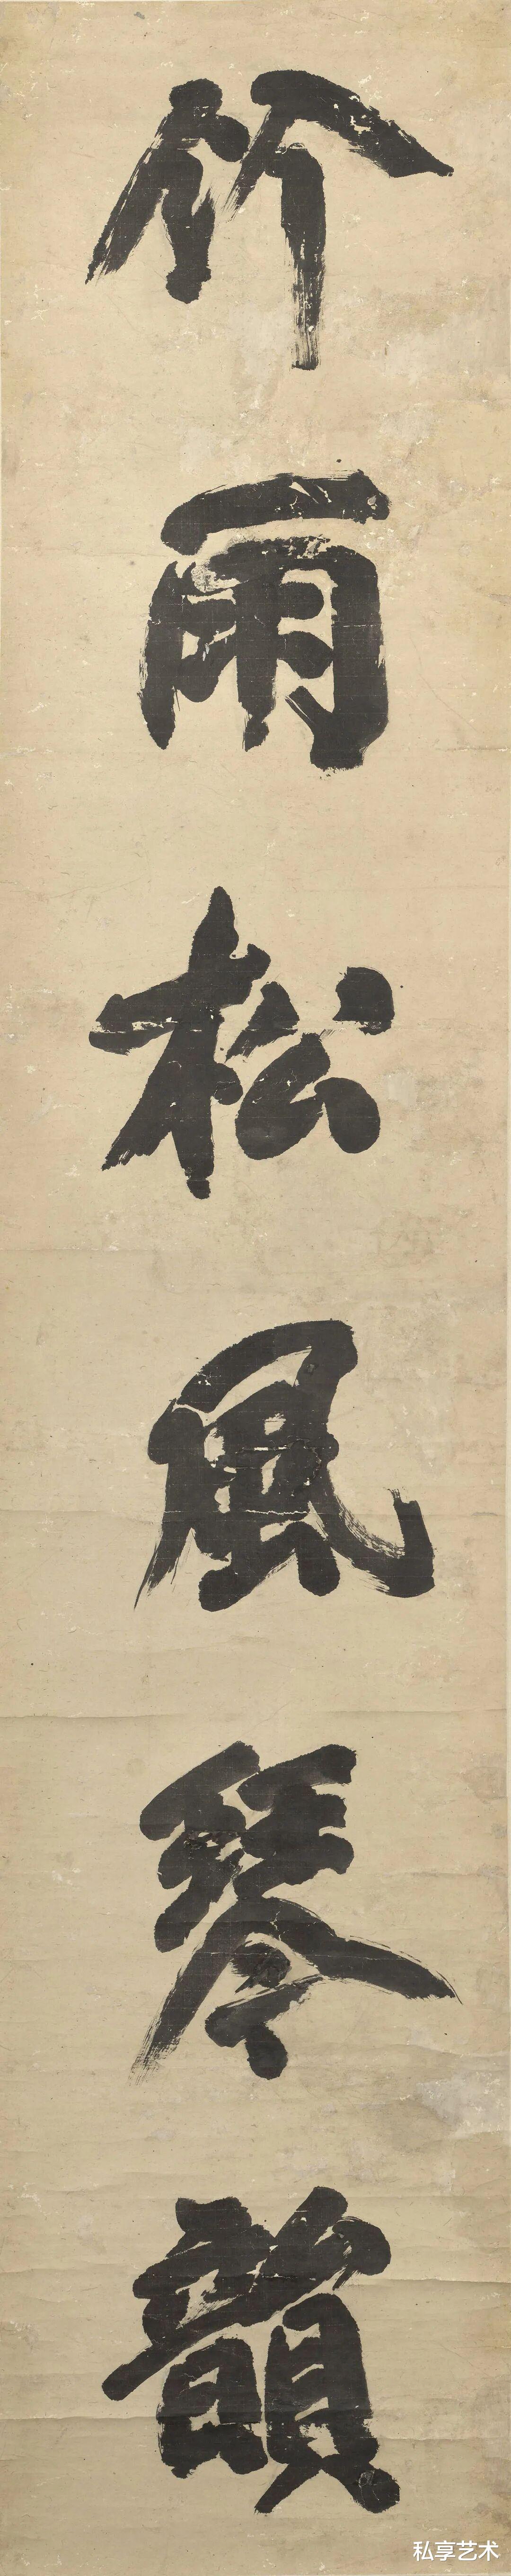 竹雨松風琴韻
私享艺术